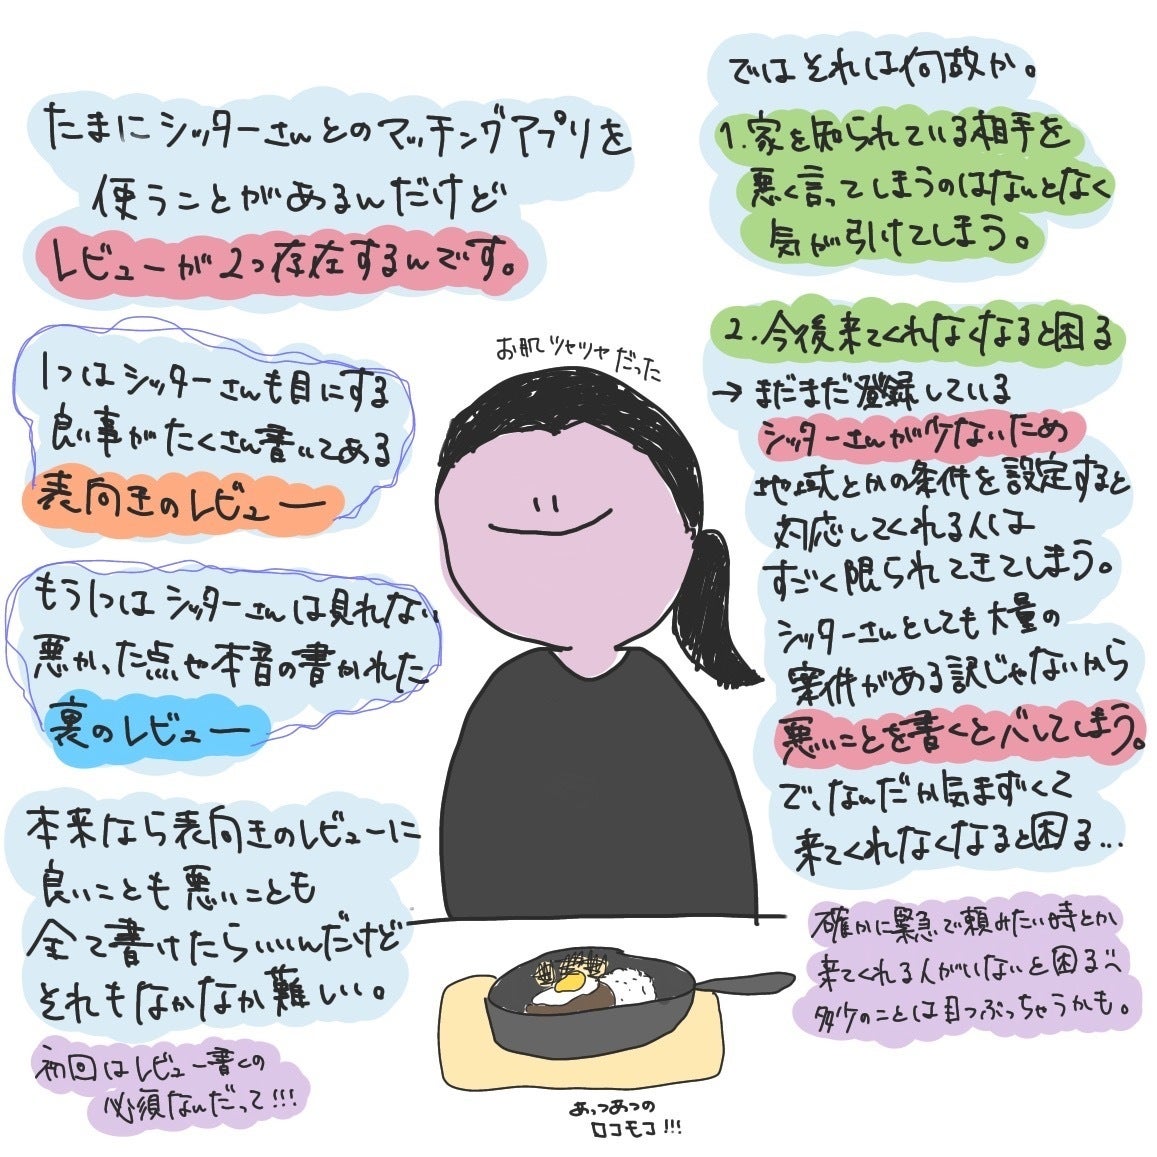 たまにシッターさんとのマッチングアプリを
使うことがあるんだけど
レビューが2つ存在するんです。
1つはシッターさんも目にする
良い事がたくさん書いてある
表向きのレビュー
もう1つはシッターさんは見れない
悪かった点や本音の書かれた
裏のレビュー
本来なら表向きのレビューに
良いことも悪いことも
全て書けたらいいんだけど
それもなかなか難しい。
初回はレビュー書くの
必須なんだって!!!
お肌ツヤツヤだった
あっつあつの
ロコモコ!!!
ではそれは何故か。
1.家を知られている相手を
悪く言ってしまうのはなんとなく
気が引けてしまう。
2.今後来てくれなくなると困る
→まだまだ登録している
シッターさんが少ないため
地域とかの条件を設定すると
対応してくれる人は
すごく限られてきてしまう。
シッターさんとしても大量の
案件がある訳じゃないから
悪いことを書くとバレてしまう。
で、なんだか気まずくて
来てくれなくなると困る...
確かに緊急で頼みたい時とか
来てくれる人がいないと困る
多少のことは目つぶっちゃうかも。